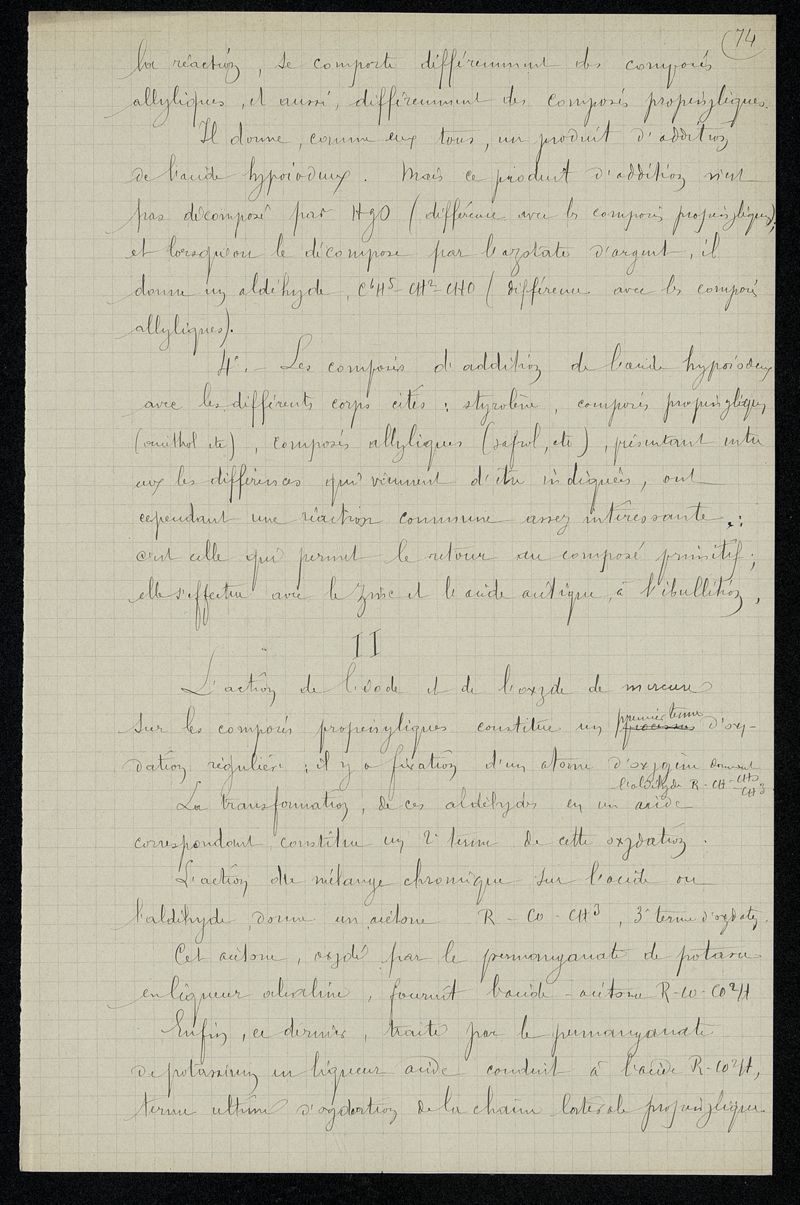 74
la réaction, se comporte différemment des composés
allyliques, et aussi, différemment des composés propényliques.
Il donne, comme eux tous, un produit d'addition
de l'acide hypoiodeux. Mais ce produit d'addition n'est
pas décomposé par HgO (différence avec les composés propényliques);
et lorsqu'on le décompose par l'azotate d'argent, il
donne un aldéhyde, C⁶H⁵-CH²-CHO (différence avec les composés
allyliques).
4°.- Les composés d'addition de l'acide hypoiodeux
avec les différents corps cités : styrolène, composés propényliques
(anéthol etc), composés allyliques (safrol, etc), présentant entre
eux les différences qui viennent d'être indiquées, ont
cependant une réaction commune assez intéressante :
c'est celle qui permet le retour au composé primitif;
elle s'effectue avec le zinc et l'acide acétique, à l'ébullition,
II
L'action de l'iode et de l'oxyde de mercure
sur les composés propényliques constitue un processus premier terme d'oxy-
dation régulière : il y a fixation d'un atome d'oxygène donnant
l'aldéhyde R-CH-CHO
CH3
La transformation, de ces aldéhydes en un acide
correspondant, constitue un 2e terme de cette oxydation.
L'action du mélange chromique sur l'acide ou
l'aldéhyde, donne un acétone R-CO-CH³, 3e terme d'oxydation.
Cet acétone, oxydé par le permanganate de potasse
en liqueur alcaline, fournit l'acide-acétone R-CO-CO²H
Enfin, ce dernier, traité par le permanganate
de potassium en liqueur acide conduit à l'acide R-CO²H,
terme ultime d'oxydation de la chaîne latérale propénylique.